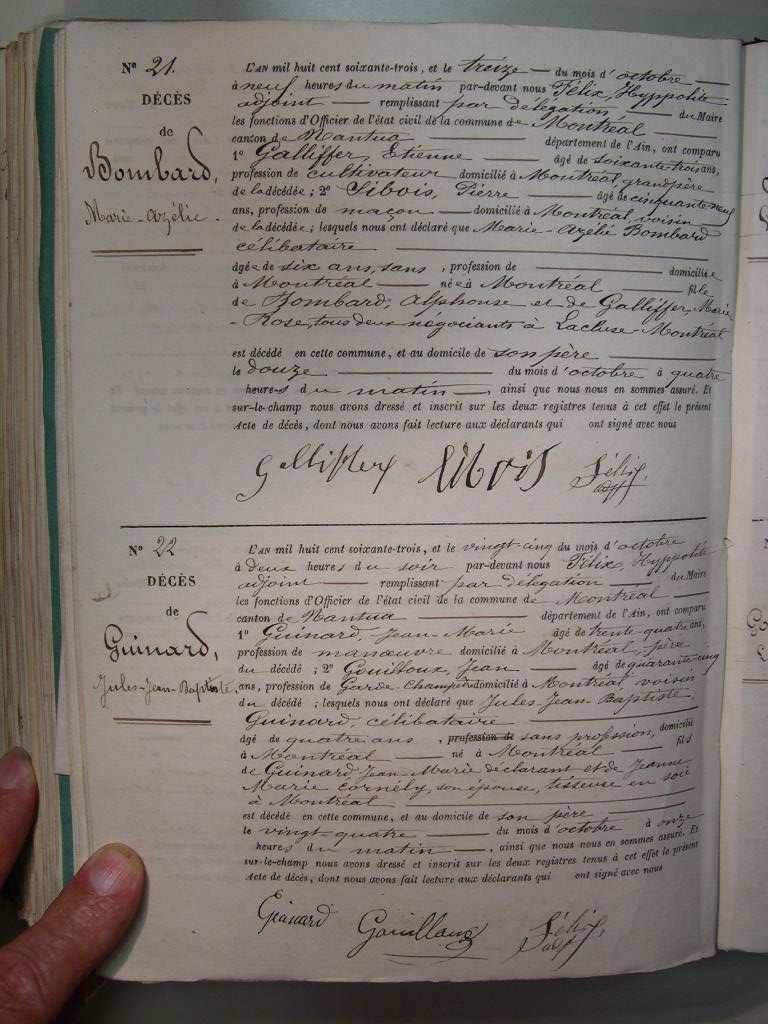 N° 21.
DÉCÈS
de
Bombard,
Marie-Azélie.
L'AN mil huit cent soixante-trois, et le treize du mois d'octobre
à neuf heures du matin par-devant nous Félix, Hyppolite
adjoint remplissant par délégation du Maire
les fonctions d'Officier de l'état civil de la commune de Montréal
canton de Nantua département de l'Ain, ont comparu
1° Galliffer, Etienne âgé de soixante-trois ans,
profession de cultivateur domicilié à Montréal, grand père
de la décédée; 2° Sibois, Pierre âgé de cinquante-neuf
ans, profession de maçon domicilié à Montréal, voisin
de la décédée; lesquels nous ont déclaré que Marie-Azélie Bombard
célibataire
âgée de six ans, sans, profession de domiciliée
à Montréal née à Montréal fille
de Bombard, Alphonse et de Galliffer, Marie
-Rose, tous deux négociants à Lacluse-Montréal
est décédé en cette commune, et au domicile de son père
le douze du mois d'octobre à quatre
heures du matin, ainsi que nous nous en sommes assuré. Et
sur-le-champ nous avons dressé et inscrit sur les deux registres tenus à cet effet le présent
Acte de décès, dont nous avons fait lecture aux déclarants qui ont signé avec nous
Galliffer Sibois Félix
adj
N° 22
DÉCÈS
de
Guinard,
Jules-Jean-Baptiste,
L'AN mil huit cent soixante-trois, et le vingt-cinq du mois d'octobre
à deux heures du soir par-devant nous Félix, Hyppolite
adjoint remplissant par délégation du Maire
les fonctions d'Officier de l'état civil de la commune de Montréal
canton de Nantua département de l'Ain, ont comparu
1° Guinard, Jean-Marie âgé de trente-quatre ans,
profession de manœuvre domicilié à Montréal, père
du décédé; 2° Gouilloux, Jean âgé de quarante-cinq
ans, profession de Garde-Champêtre domicilié à Montréal, voisin
du décédé; lesquels nous ont déclaré que Jules-Jean-Baptiste
Guinard, célibataire
âgé de quatre ans, profession de sans profession, domicilié
à Montréal né à Montréal fils
de Guinard Jean-Marie déclarant et de Jeanne
Marie Cornély, son épouse, tisseuse en soie
à Montréal
est décédé en cette commune, et au domicile de son père
le vingt-quatre du mois d'octobre à onze
heures du matin, ainsi que nous nous en sommes assuré. Et
sur-le-champ nous avons dressé et inscrit sur les deux registres tenus à cet effet le présent
Acte de décès, dont nous avons fait lecture aux déclarants qui ont signé avec nous
Guinard Gouilloux Félix
adj